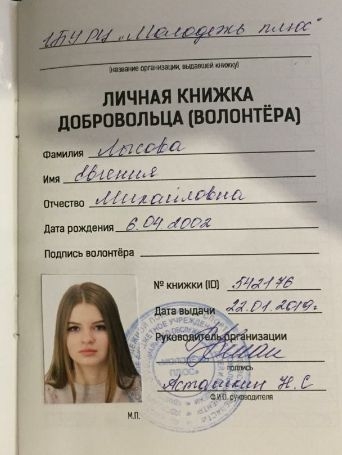 ГБУ РЦ „Молодежь плюс“
(название организации, выдавшей книжку)
ЛИЧНАЯ КНИЖКА
ДОБРОВОЛЬЦА (ВОЛОНТЁРА)
Фамилия Лысова
Имя Евгения
Отчество Михайловна
Дата рождения 6.04.2002
Подпись волонтёра
№ книжки (ID) 542176
Дата выдачи 22.01.2019г.
Руководитель организации
подпись
Асташкин Н.С
Ф.И.О. руководителя
М.П.